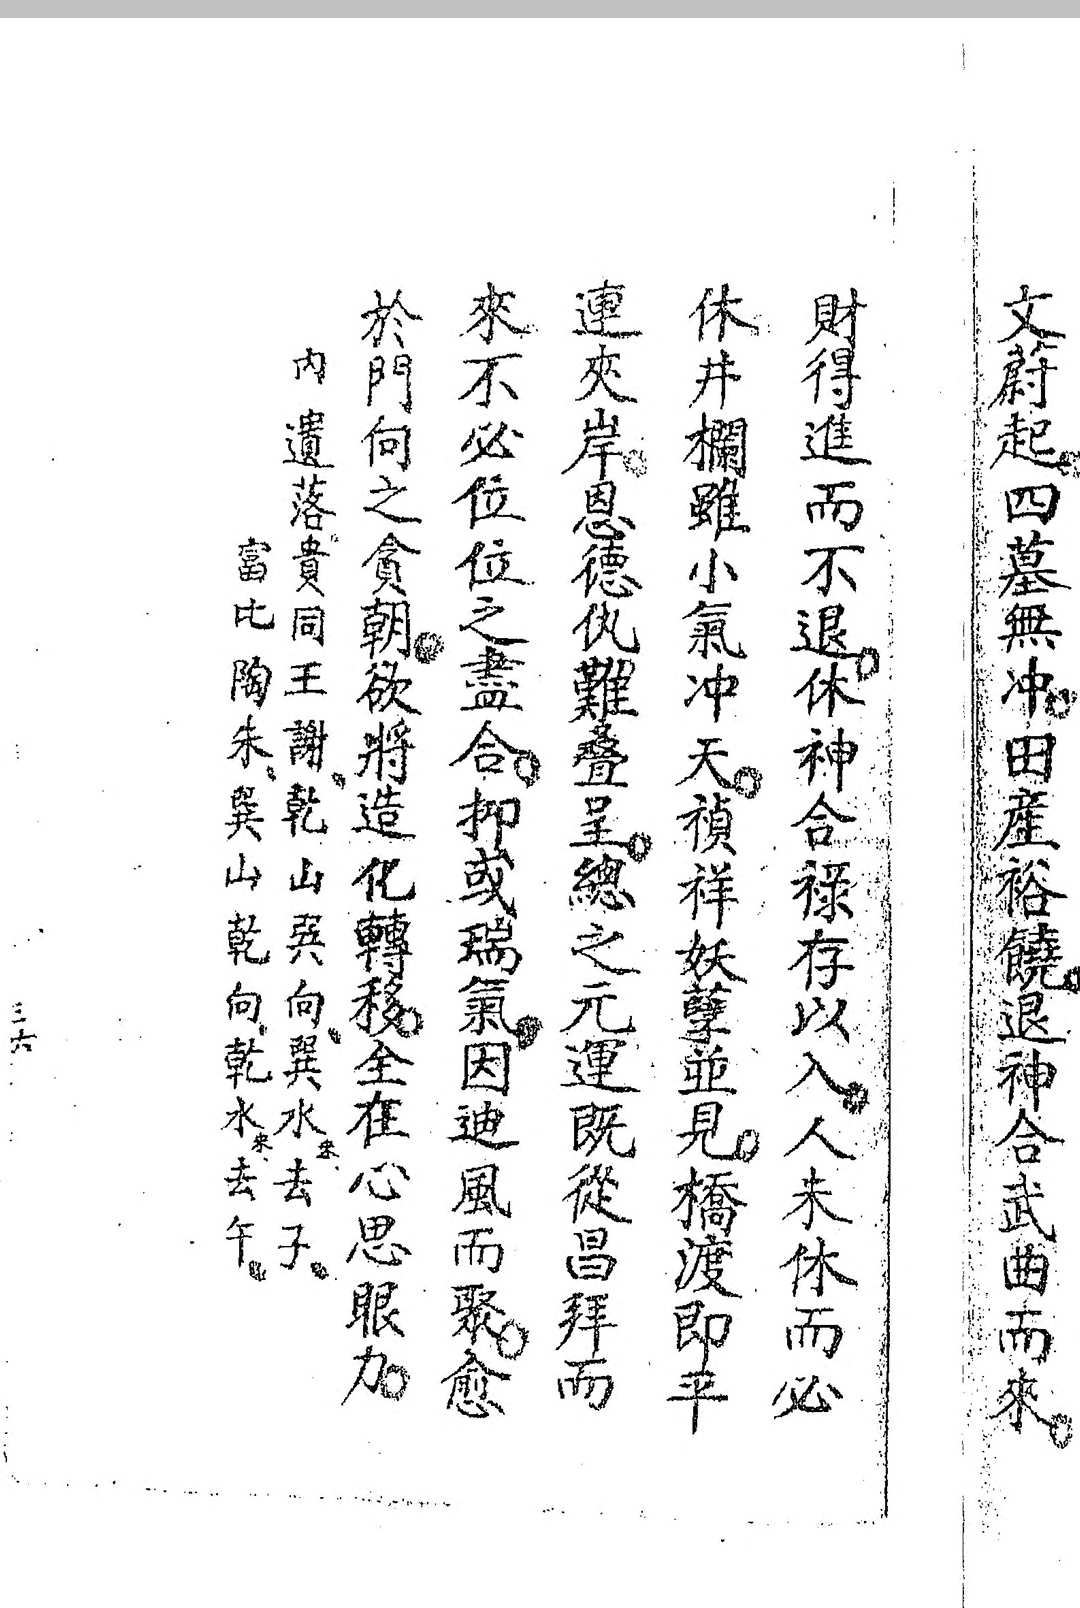 文蔚起。四墓無冲。田産裕饒。退神合武曲而來。
財得進而不退。休神合祿存以入。人未休而必
休井欄雖小氣冲天。禎祥妖孽並見。橋渡即平
連夾岸。恩德仇難叠呈。總之元運既從昌拜而
來不必位位之盡合。抑或瑞氣。因迪風而聚。愈
於門向之貪朝。欲將造化轉移。全在心思眼力。
内遺落貴同王謝、乾山巽向、巽水来、去子。
富比陶朱、巽山乾向、乾水来、去午。
三六